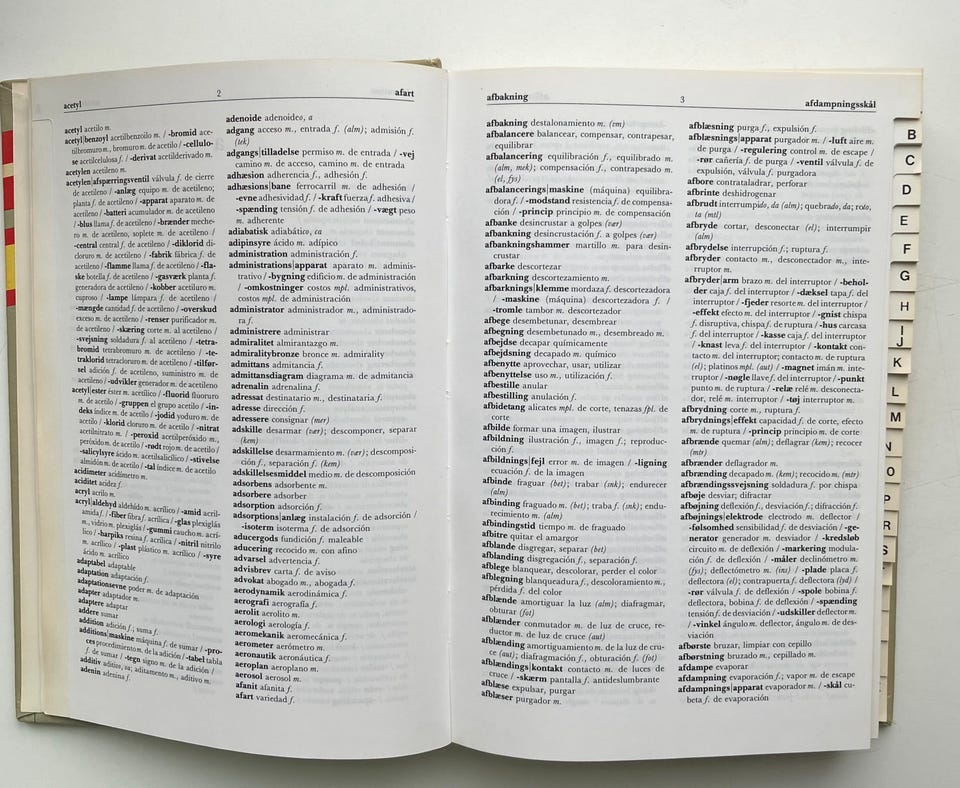 acetyl 2 afart
acetyl acetilo m.
acetyl|benzoyl acetilbenzoilo m. / -bromid ace-
tilbromuro m., bromuro m. de acetilo / -cellulo-
se acetilcelulosa f. / -derivat acetilderivado m.
acetylen acetileno m.
acetylen|afspærringsventil válvula f. de cierre
de acetileno / -anlæg equipo m. de acetileno;
planta f. de acetileno / -apparat aparato m. de
acetileno / -batteri acumulador m. de acetileno
/ -blus llama f. de acetileno / -brænder meche-
ro m. de acetileno, soplete m. de acetileno /
-central central f. de acetileno / -diklorid di-
cloruro m. de acetileno / -fabrik fábrica f. de
acetileno / -flamme llama f. de acetileno / -fla-
ske botella f. de acetileno / -gasværk planta f.
generadora de acetileno / -kobber acetiluro m.
cuproso / -lampe lámpara f. de acetileno /
-mængde cantidad f. de acetileno / -overskud
exceso m. de acetileno / -renser purificador m.
de acetileno / -skæring corte m. al acetileno /
-svejsning soldadura f. al acetileno / -tetra-
bromid tetrabromuro m. de acetileno / -te-
traklorid tetracloruro m. de acetileno / -tilfør-
sel adición f. de acetileno, suministro m. de
acetileno / -udvikler generador m. de acetileno
acetyl|ester éster m. acetílico / -fluorid fluoruro
m. de acetilo / -gruppen el grupo acetilo / -in-
deks índice m. de acetilo / -jodid yoduro m. de
acetilo / -klorid cloruro m. de acetilo / -nitrat
acetilnitrato m. / -peroxid acetilperóxido m.,
peróxido m. de acetilo / -rødt rojo m. de acetilo /
-salicylsyre ácido m. acetilsalicílico / -stivelse
almidón m. de acetilo / -tal índice m. de acetilo
acidimeter acidímetro m.
aciditet acidez f.
acryl acrilo m.
acryl|aldehyd aldehído m. acrílico / -amid acril-
amida f. / -fiber fibra f. acrílica / -glas plexiglás
m., vidrio m. plexiglás / -gummi caucho m. acrí-
lico / -harpiks resina f. acrílica / -nitril nitrilo
m. acrílico / -plast plástico m. acrílico / -syre
ácido m. acrílico
adaptabel adaptable
adaptation adaptación f.
adaptationsevne poder m. de adaptación
adapter adaptador m.
adaptere adaptar
addere sumar
addition adición f., suma f.
additions|maskine máquina f. de sumar / -pro-
ces procedimiento m. de la adición / -tabel tabla
f. de sumar / -tegn signo m. de la adición /
additiv aditivo, va; aditamento m., aditivo m.
adenin adenina f.
adenoide adenoideo, a
adgang acceso m., entrada f. (alm); admisión f.
(tek)
adgangs|tilladelse permiso m. de entrada / -vej
camino m. de acceso, camino m. de entrada
adhæsion adherencia f., adhesión f.
adhæsions|bane ferrocarril m. de adhesión /
-evne adhesividad f. / -kraft fuerza f. adhesiva /
-spænding tensión f. de adhesión / -vægt peso
m. adherente
adiabatisk adiabático, ca
adipinsyre ácido m. adípico
administration administración f.
administrations|apparat aparato m. adminis-
trativo / -bygning edificio m. de administración
/ -omkostninger costos mpl. administrativos,
costos mpl. de administración
administrator administrador m., administrado-
ra f.
administrere administrar
admiralitet almirantazgo m.
admiralitybronze bronce m. admirality
admittans admitancia f.
admittansdiagram diagrama m. de admitancia
adrenalin adrenalina f.
adressat destinatario m., destinataria f.
adresse dirección f.
adressere consignar (mer)
adskille desarmar (vær); descomponer, separar
(kem)
adskillelse desarmamiento m. (vær); descomposi-
ción f., separación f. (kem)
adskillelsesmiddel medio m. de descomposición
adsorbens adsorbente m.
adsorbere adsorber
adsorption adsorción f.
adsorptions|anlæg instalación f. de adsorción /
-isoterm isoterma f. de adsorción
aducergods fundición f. maleable
aducering recocido m. con afino
advarsel advertencia f.
advisbrev carta f. de aviso
advokat abogado m., abogada f.
aerodynamik aerodinámica f.
aerografi aerografía f.
aerolit aerolito m.
aerologi aerología f.
aeromekanik aeromecánica f.
aerometer aerómetro m.
aeronautik aeronáutica f.
aeroplan aeroplano m.
aerosol aerosol m.
afanit afanita f.
afart variedad f.
afbakning 3 afdampningsskål
afbakning destalonamiento m. (tm)
afbalancere balancear, compensar, contrapesar,
equilibrar
afbalancering equilibración f., equilibrado m.
(alm, mek); compensación f., contrapesado m.
(el, fys)
afbalancerings|maskine (máquina) equilibra-
dora f. / -modstand resistencia f. de compensa-
ción / -princip principio m. de compensación
afbanke desincrustar a golpes (vær)
afbankning desincrustación f. a golpes (vær)
afbankningshammer martillo m. para desin-
crustar
afbarke descortezar
afbarkning descortezamiento m.
afbarknings|klemme mordaza f. descortezadora
/ -maskine (máquina) descortezadora f. /
-tromle tambor m. descortezador
afbege desembetunar, desembrear
afbegning desembetunado m., desembreado m.
afbejdse decapar químicamente
afbejdsning decapado m. químico
afbenytte aprovechar, usar, utilizar
afbenyttelse uso m., utilización f.
afbestille anular
afbestilling anulación f.
afbidetang alicates mpl. de corte, tenazas fpl. de
corte
afbilde formar una imagen, ilustrar
afbildning ilustración f., imagen f.; reproduc-
ción f.
afbildnings|fejl error m. de imagen / -ligning
ecuación f. de la imagen
afbinde fraguar (bet); trabar (snk); endurecer
(alm)
afbinding fraguado m. (bet); traba f. (snk); endu-
recimiento m. (alm)
afbindingstid tiempo m. de fraguado
afbitre quitar el amargor
afblande disgregar, separar (bet)
afblanding disgregación f., separación f.
afblege blanquear, descolorar, perder el color
afblegning blanqueadura f., descoloramiento m.,
pérdida f. del color
afblænde amortiguar la luz (alm); diafragmar,
obturar (fot)
afblænder conmutador m. de luz de cruce, re-
ductor m. de luz de cruce (aut)
afblænding amortiguamiento m. de la luz de cru-
ce (aut); diafragmación f., obturación f. (fot)
afblændings|kontakt contacto m. de luces de
cruce / -skærm pantalla f. antideslumbrante
afblæse expulsar, purgar
afblæser purgador m.
afblæsning purga f., expulsión f.
afblæsnings|apparat purgador m. / -luft aire m.
de purga / -regulering control m. de escape /
-rør cañería f. de purga / -ventil válvula f. de
expulsión, válvula f. purgadora
afbore contrataladrar, perforar
afbrinte deshidrogenar
afbrudt interrumpido, da (alm); quebrado, da; roto,
ta (mtl)
afbryde cortar, desconectar (el); interrumpir
(alm)
afbrydelse interrupción f.; ruptura f.
afbryder contacto m., desconectador m., inte-
rruptor m.
afbryder|arm brazo m. del interruptor / -behol-
der caja f. del interruptor / -dæksel tapa f. del
interruptor / -fjeder resorte m. del interruptor /
-effekt efecto m. del interruptor / -gnist chispa
f. disruptiva, chispa f. de ruptura / -hus carcasa
f. del interruptor / -kasse caja f. del interruptor
/ -knast leva f. del interruptor / -kontakt con-
tacto m. del interruptor; contacto m. de ruptura
(el); platinos mpl. (aut) / -magnet imán m. inte-
rruptor / -nøgle llave f. del interruptor / -punkt
punto m. de ruptura / -relæ relé m. desconecta-
dor, relé m. interruptor / -tøj interruptor m.
afbrydning corte m., ruptura f.
afbrydnings|effekt capacidad f. de corte, efecto
m. de ruptura / -princip principio m. de corte
afbrænde quemar (alm); deflagrar (kem); recocer
(mtr)
afbrænder deflagrador m.
afbrænding decapado m. (kem); recocido m. (mtr)
afbrændingssvejsning soldadura f. por chispa
afbøje desviar; difractar
afbøjning deflexión f., desviación f.; difracción f.
afbøjnings|elektrode electrodo m. deflector /
-følsomhed sensibilidad f. de desviación / -ge-
nerator generador m. desviador / -kredsløb
circuito m. de deflexión / -markering modula-
ción f. de deflexión / -måler declinómetro m.
(fys); deflectómetro m. (tm) / -plade placa f.
deflectora (el); contrapuerta f. deflectora (lyd) /
-rør válvula f. de deflexión / -spole bobina f.
deflectora, bobina f. de deflexión / -spænding
tensión f. de desviación / -udskiller deflector m.
/ -vinkel ángulo m. deflector, ángulo m. de des-
viación
afbørste bruzar, limpiar con cepillo
afbørstning bruzado m., cepillado m.
afdampe evaporar
afdampning evaporación f.; vapor m. de escape
afdampnings|apparat evaporador m. / -skål cu-
beta f. de evaporación
B
C
D
E
F
G
H
IJ
K
L
M
N
O
P
R
S